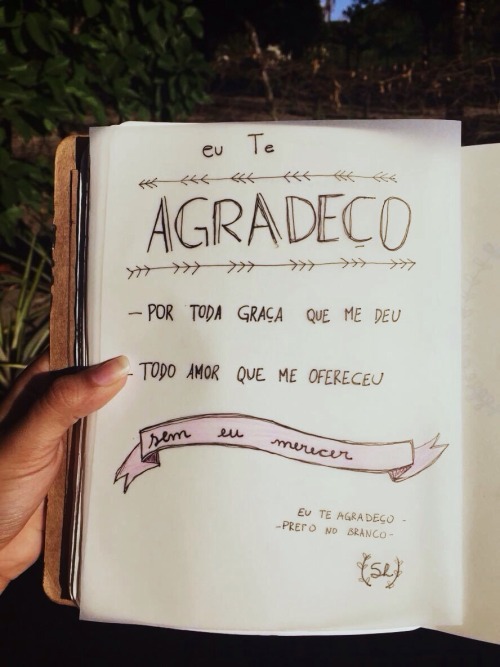 eu Te
AGRADEÇO
- POR TODA GRAÇA QUE ME DEU
- TODO AMOR QUE ME OFERECEU
sem eu merecer
EU TE AGRADEÇO -
- PRETO NO BRANCO -
Sh